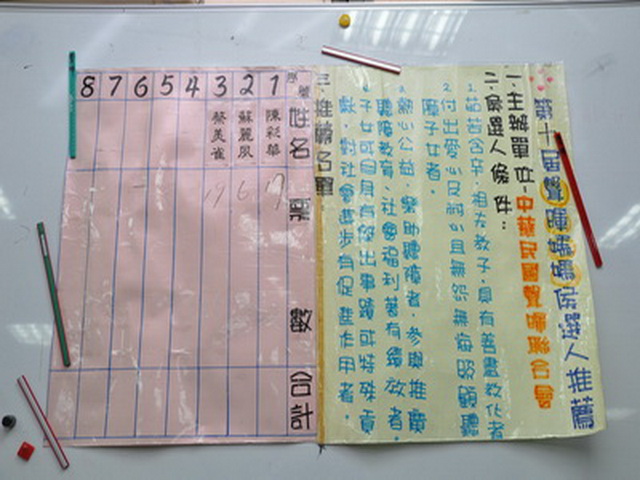 第十屆聲暉媽媽候選人推薦
一.主辦單位-中華民國聲暉聯合會
二.候選人條件:
1.茹苦含辛,相夫教子,具有善盡教化者
2.付出愛心及耐心且無怨無悔照顧聽
障子女者。
3.熱心公益,樂助聽障者,參與推廣
聽障教育、社會福利著有績效者。
4.子女或自身有傑出事蹟或特殊貢
獻,對社會進步有促進作用者。
三.推薦名單
序號 姓名 票數 合計
1 陳彩華 17
2 蘇麗夙 6
3 蔡美雀 19
4
5
6
7
8